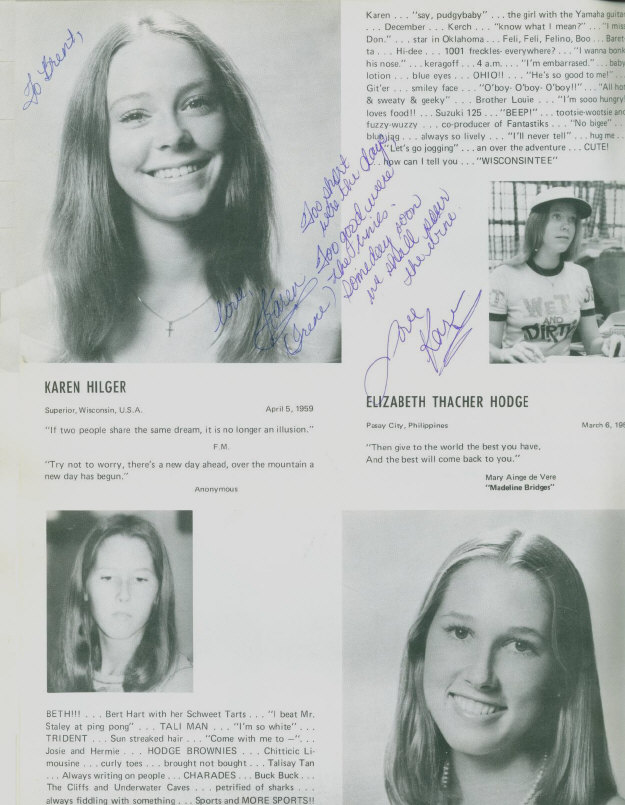 To Brent,
Too short
were the days
Too good were
the times.
Someday soon
we shall
the
Love
Kaze
love,
Karen
(Irene)
Karen . . . "say, pudgybaby" . . . the girl with the Yamaha guita
. . . December . . . Kerch . . . "know what I mean?" . . . "I mis
Don." . . . star in Oklahoma . . . Feli, Feli, Felino, Boo . . . Baret
ta . . . Hi-dee . . . 1001 freckles- everywhere? . . . "I wanna bonk
his nose." . . . keragoff . . . 4 a.m. . . . "I'm embarrased." . . . baby
lotion . . . blue eyes . . . OHIO!! . . . "He's so good to me!" . .
Git'er . . . smiley face . . . "O'boy- O'boy- O'boy!!" . . . "All hot
& sweaty & geeky" . . . Brother Louie . . . "I'm sooo hungry!
loves food!! . . . Suzuki 125 . . . "BEEP!" . . . tootsie-wootsie and
fuzzy-wuzzy . . . co-producer of Fantastiks . . . "No bigee" . . .
blue jag . . . always so lively . . . "I'll never tell" . . . hug me . .
"Let's go jogging" . . . an over the adventure . . . CUTE!
. . how can I tell you . . . "WISCONSINTEE"
WET
AND
DIRTY
KAREN HILGER
Superior, Wisconsin, U.S.A. April 5, 1959
"If two people share the same dream, it is no longer an illusion."
F.M.
"Try not to worry, there's a new day ahead, over the mountain a
new day has begun."
Anonymous
ELIZABETH THACHER HODGE
Pasay City, Philippines March 6, 195
"Then give to the world the best you have,
And the best will come back to you."
Mary Ainge de Vere
"Madeline Bridges"
BETH!!! . . . Bert Hart with her Schweet Tarts . . . "I beat Mr.
Staley at ping pong" . . . TALI MAN . . . "I'm so white" . . .
TRIDENT . . . Sun streaked hair . . . "Come with me to —". . .
Josie and Hermie . . . HODGE BROWNIES . . . Chitticic Li-
mousine . . . curly toes . . . brought not bought . . . Talisay Tan
. . . Always writing on people . . . CHARADES . . . Buck Buck . . .
The Cliffs and Underwater Caves . . . petrified of sharks . . .
always fiddling with something . . . Sports and MORE SPORTS!!